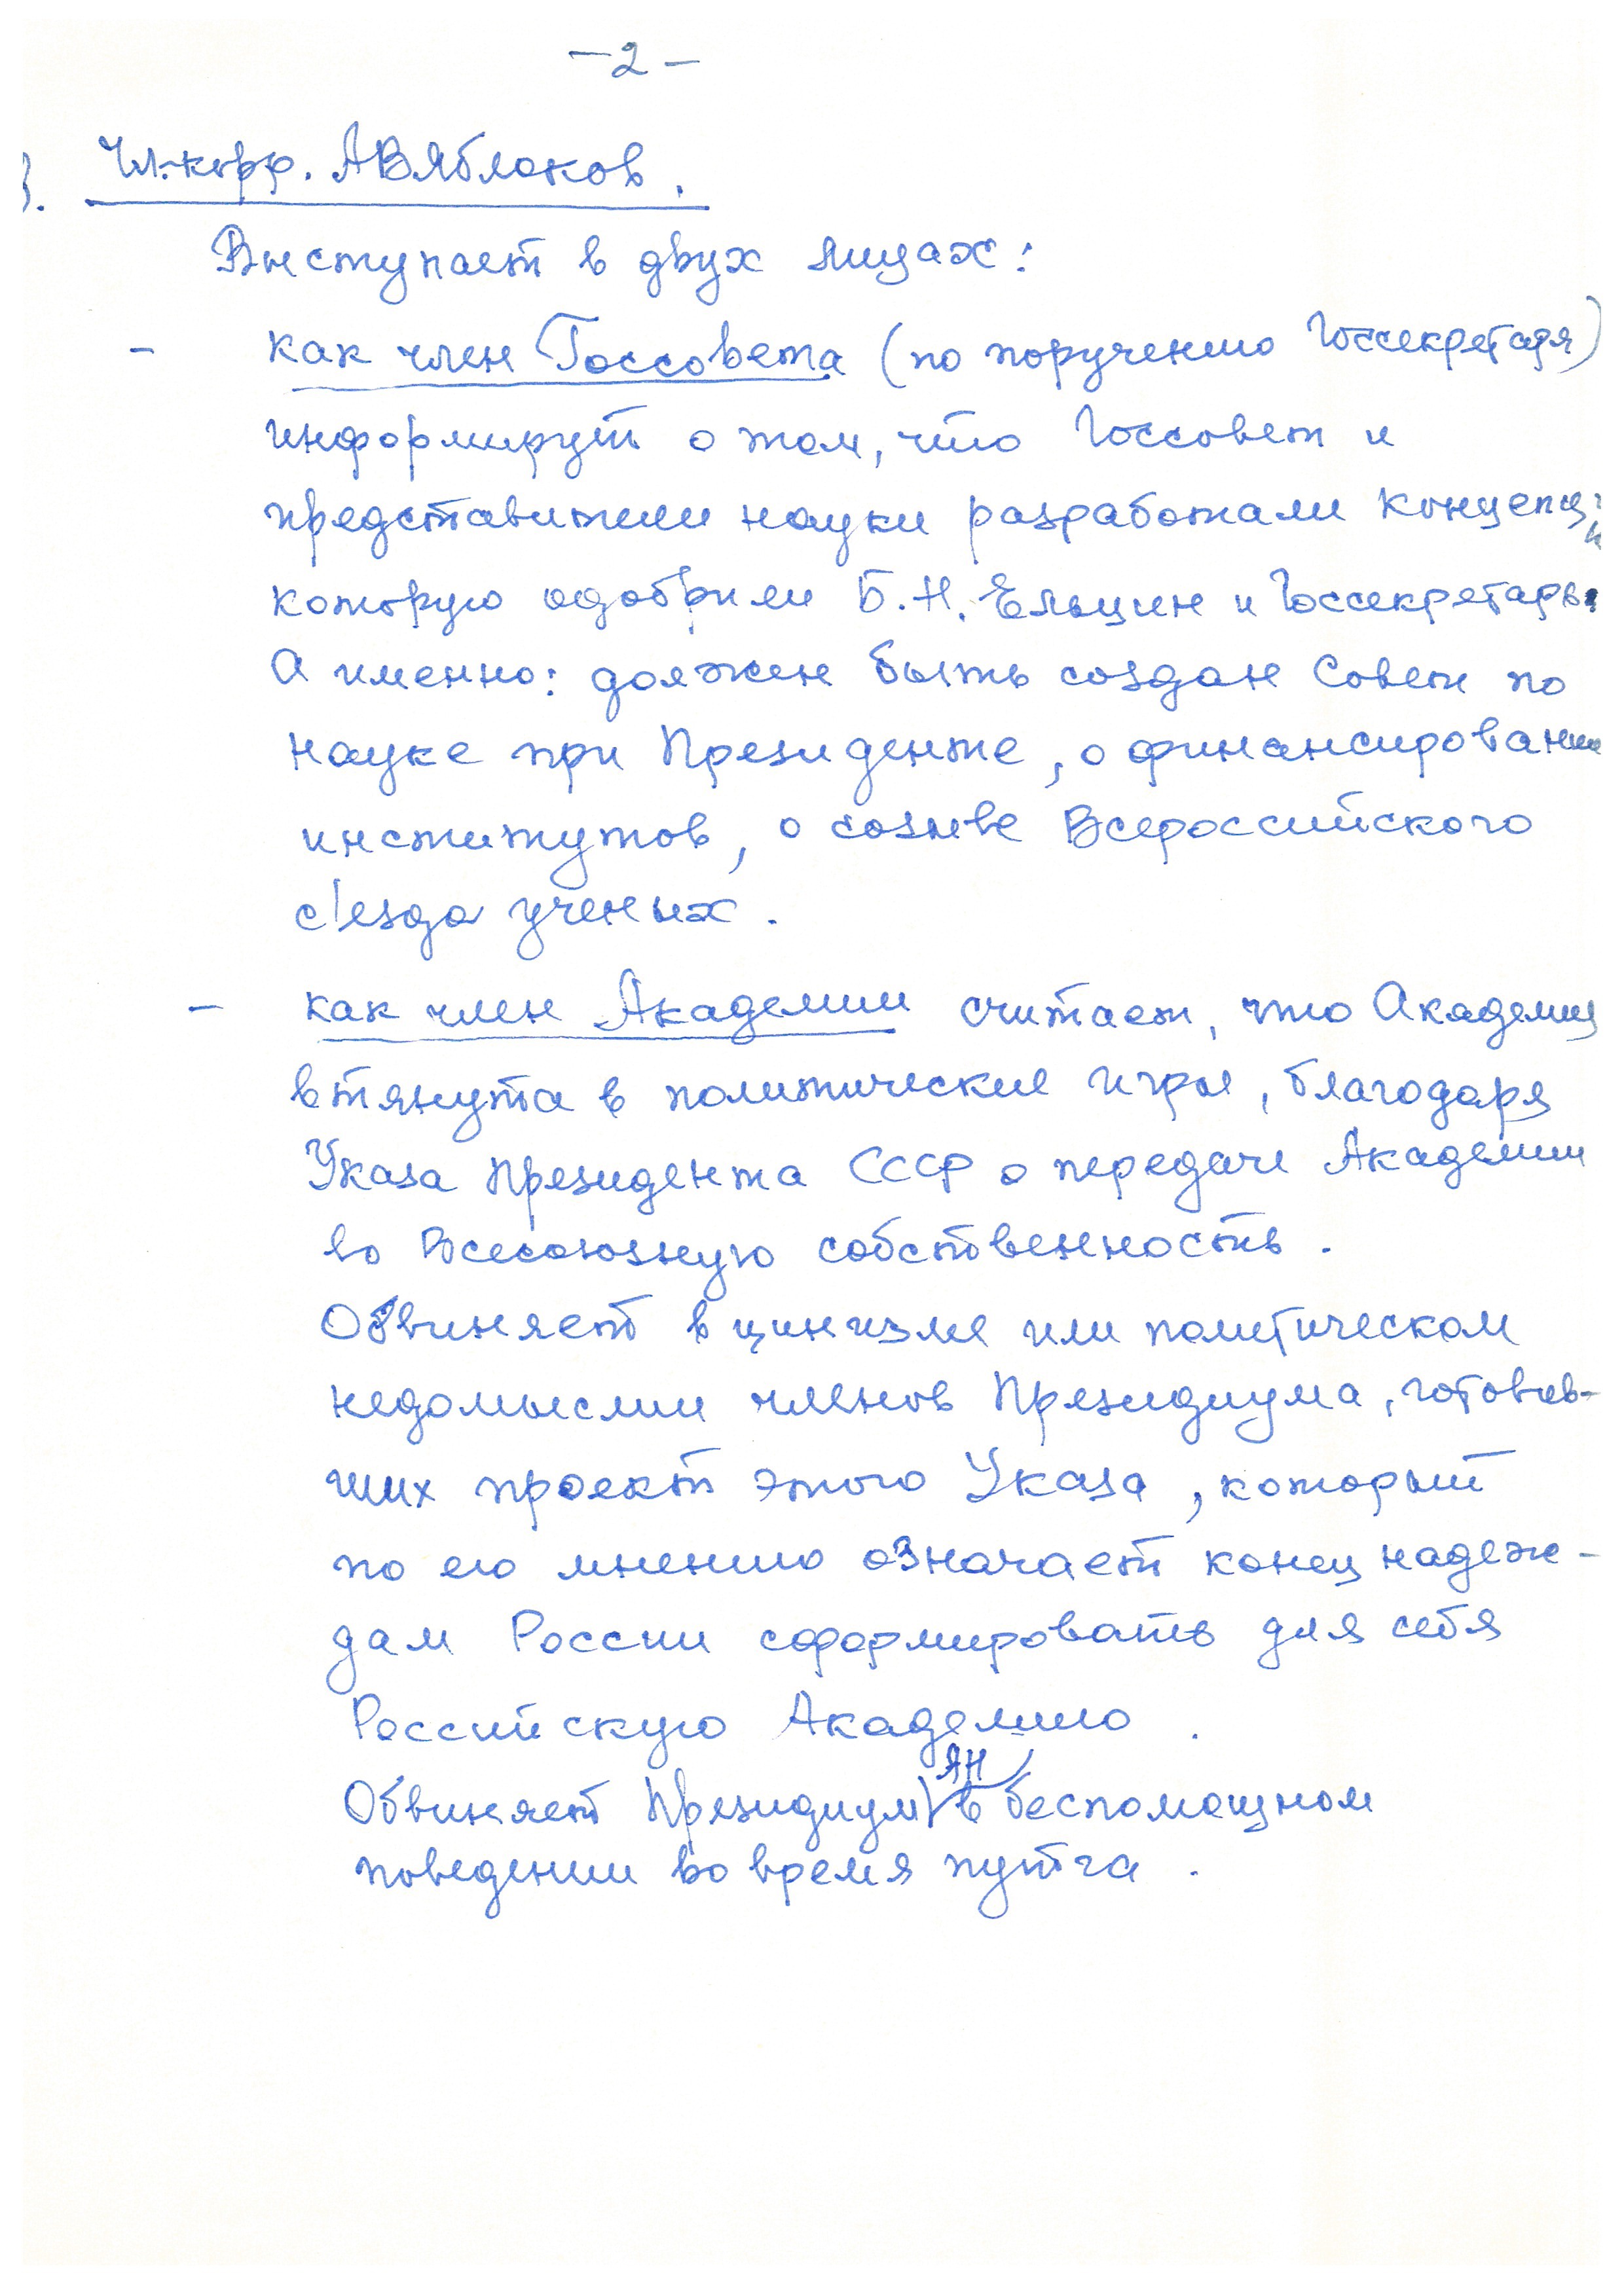 - 2 -
3. Чл.-корр. АВЯблоков.
Выступает в двух лицах:
- как член Госсовета (по поручению Госсекретаря)
информирует о том, что Госсовет и
представители науки разработали концепци
которую одобрили Б.Н. Ельцин и Госсекретарь.
А именно: должен быть создан Совет по
науке при Президенте, о финансировании
институтов, о созыве Всероссийского
с'езда ученых.
- как член Академии считает, что Академия
втянута в политические игры, благодаря
Указа Президента СССР о передаче Академии
во Всесоюзную собственность.
Обвиняет в цинизме или политическом
недомыслии членов Президиума, готовив-
ших проект этого Указа, который
по его мнению означает конец надеж-
дам России сформировать для себя
Российскую Академию.
Обвиняет Президиум АН в беспомощном
поведении во время путча.